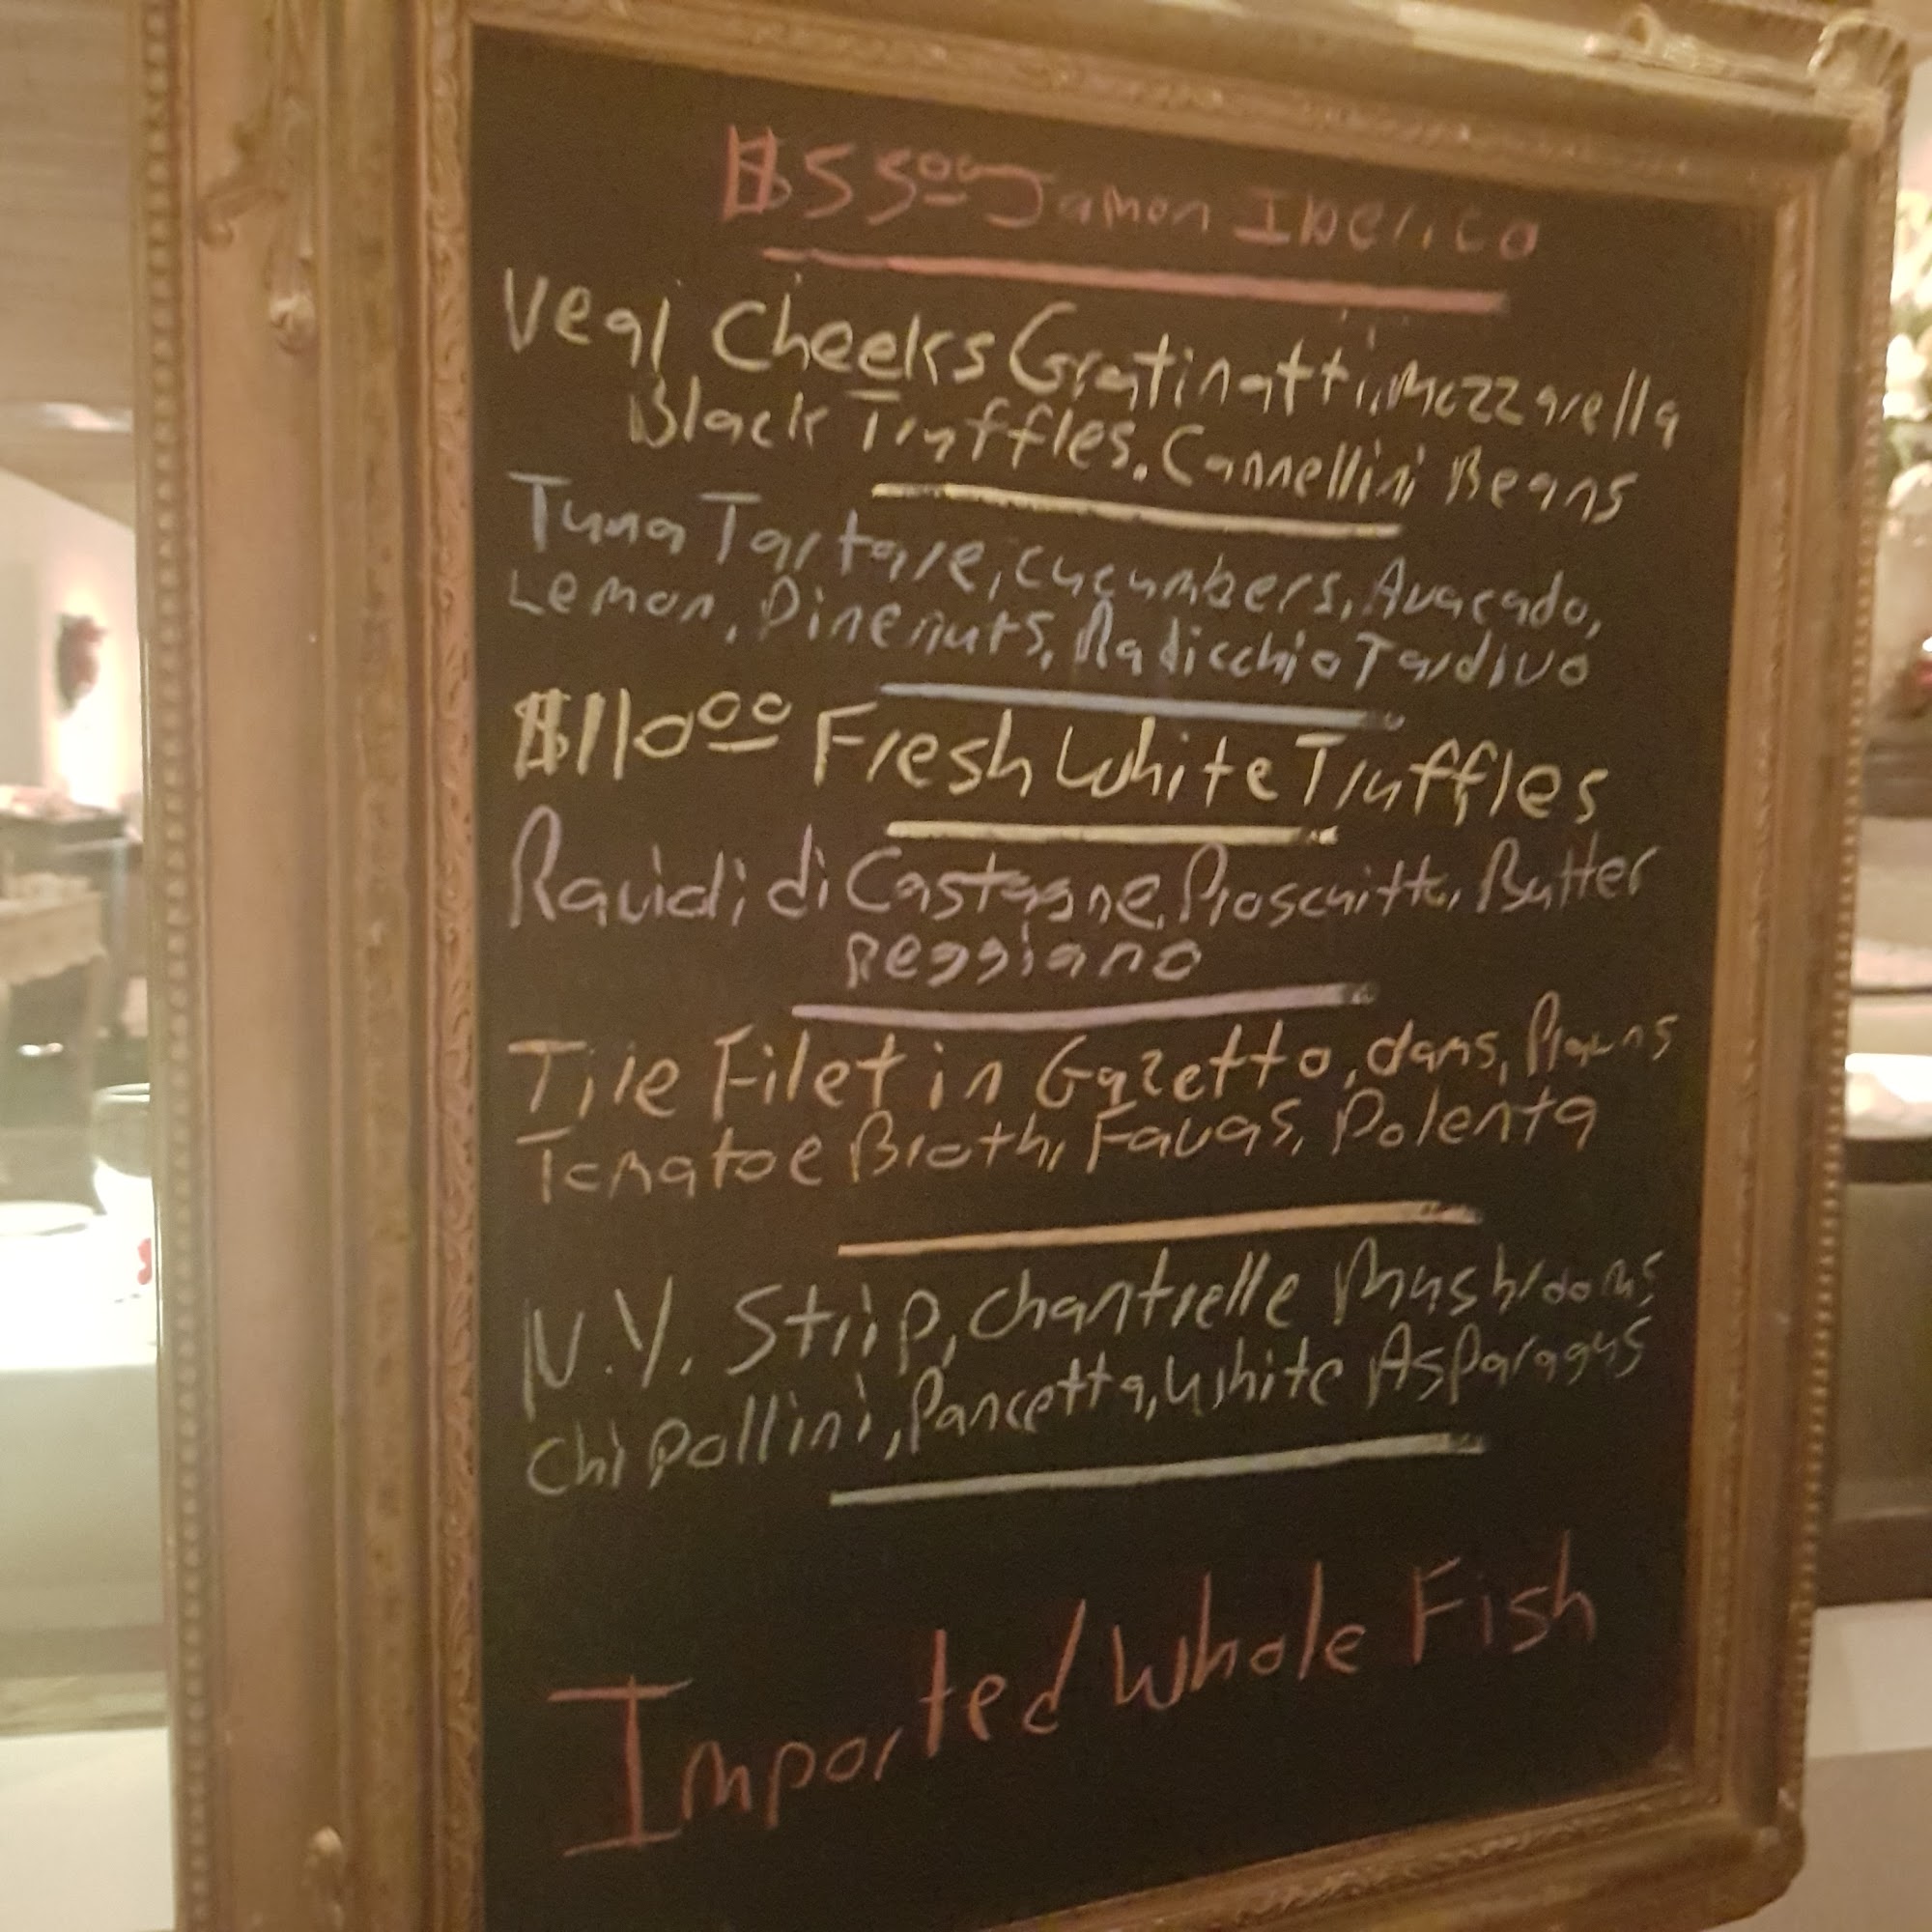 $55.00 Jamon Iberico
Veal Cheeks Gratinatti, Mozzarella
Black Truffles, Cannellini Beans
Tuna Tartare, cucumbers, Avacado,
Lemon, Pinenuts, Radicchio Tardivo
$110.00 Fresh White Truffles
Ravioli di Castagne, Proscuitto, Butter
Reggiano
Tile Filet in Gazetto, clams, Prawns
Tomatoe Broth, Favas, Polenta
N.Y. Strip, Chantrelle Mushrooms
Chipollini, Pancetta, White Asparagus
Imported Whole Fish